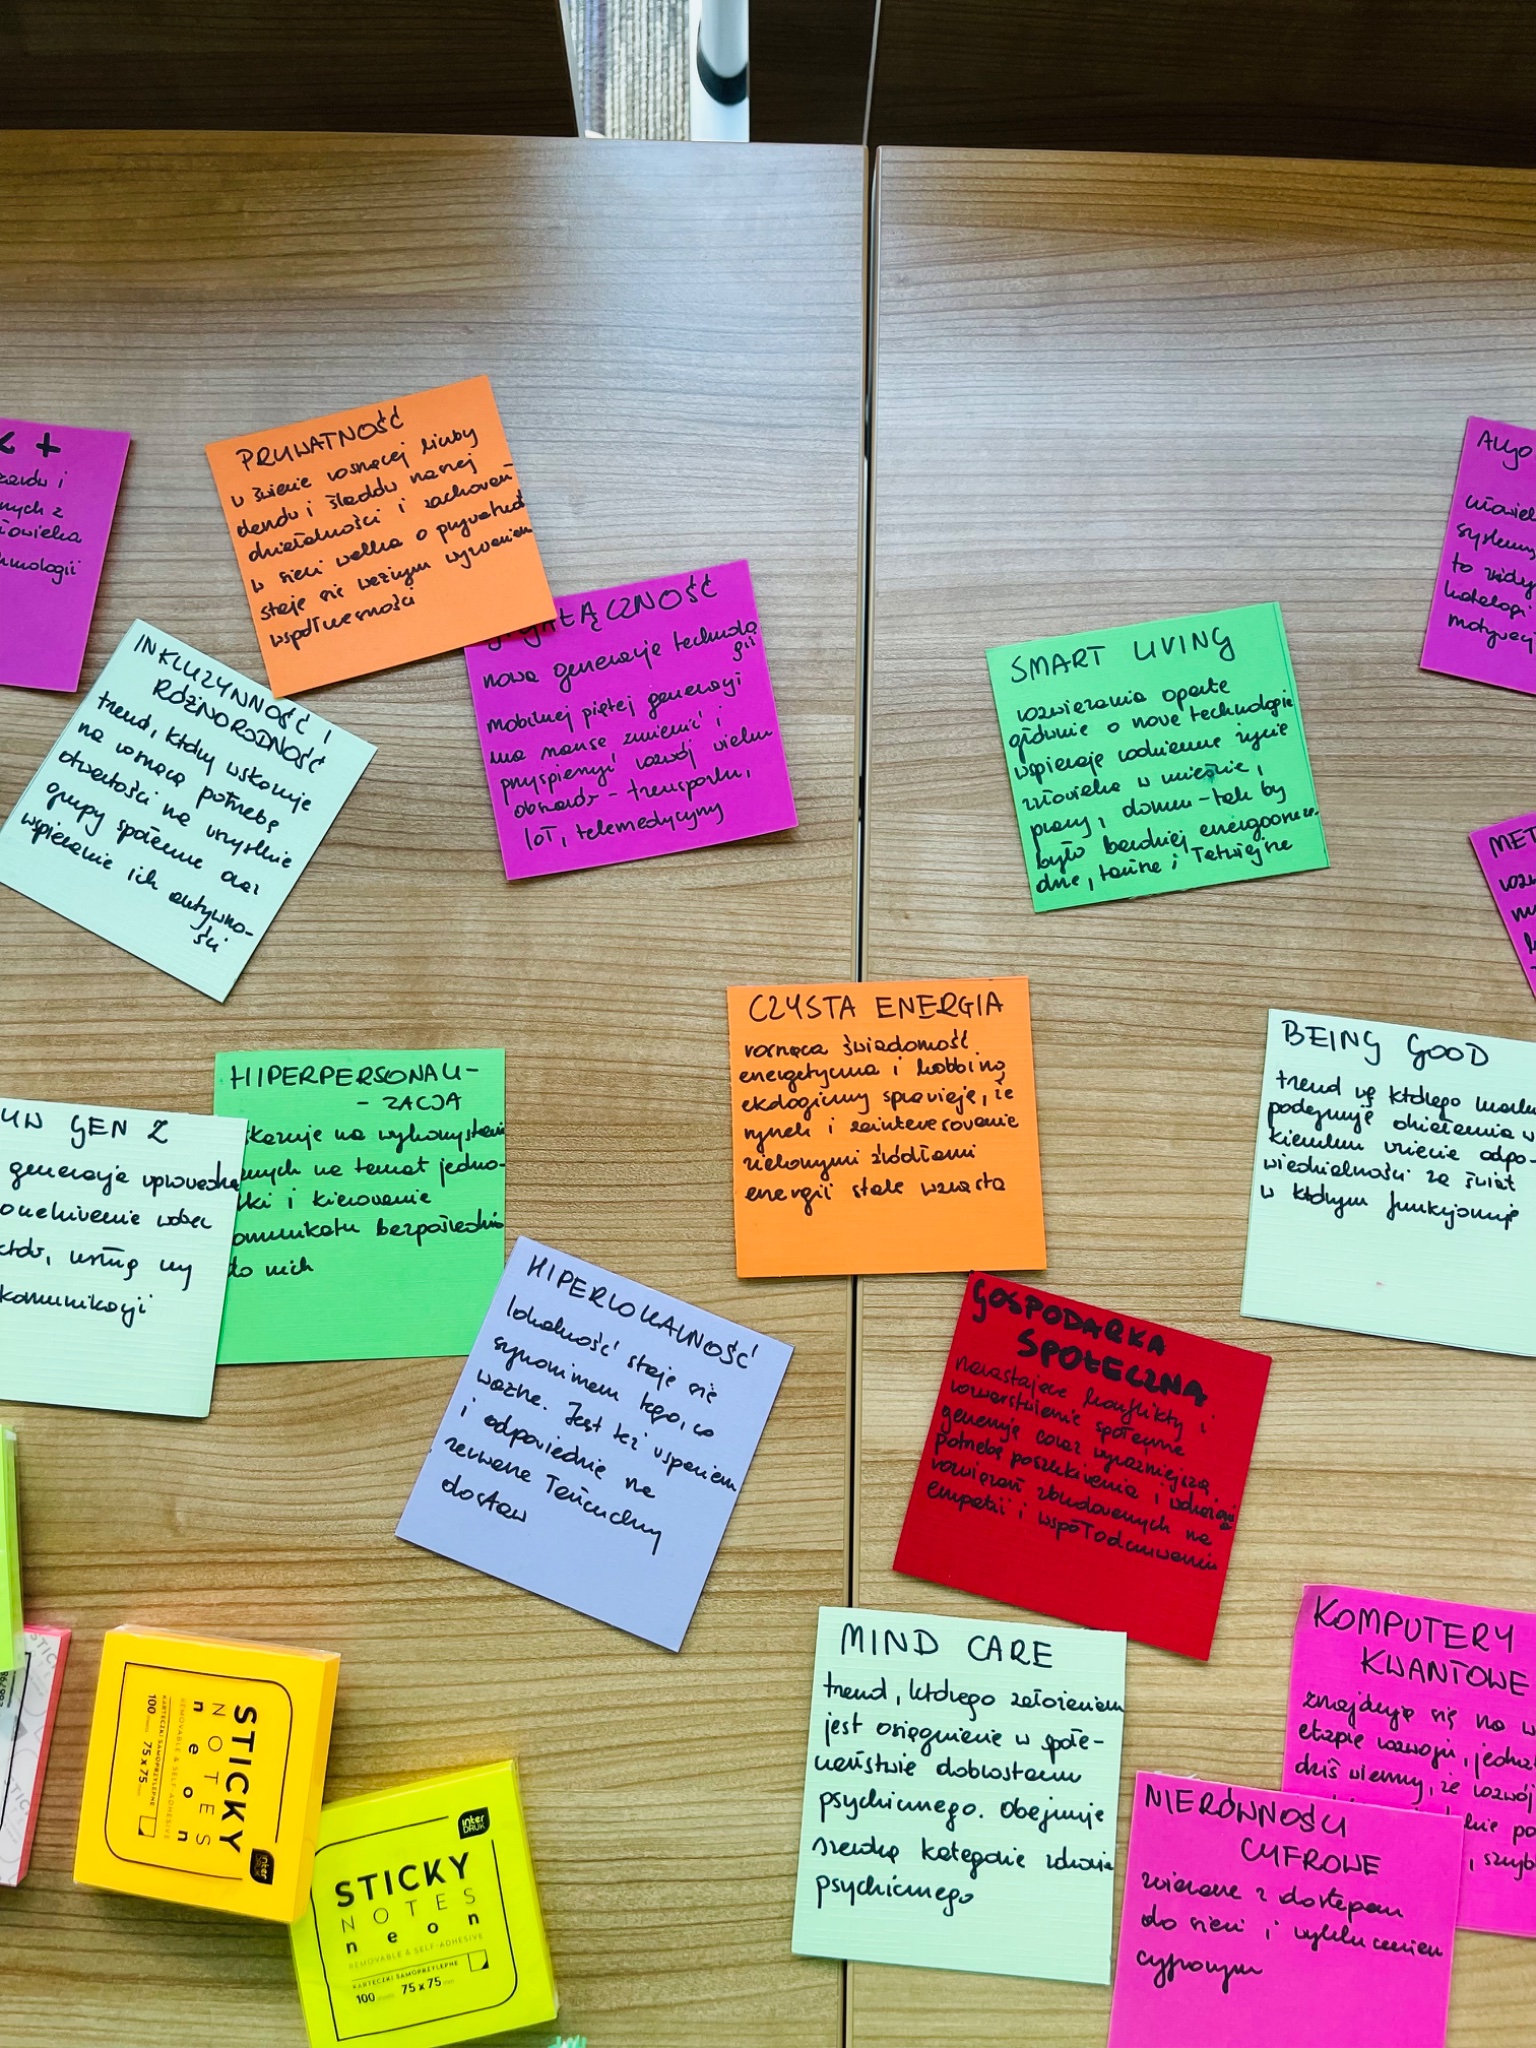 PRYWATNOŚĆ
w świecie rosnącej liczby
danych i śladów naszej
działalności i zachowań
w sieci walka o prywatność
staje się ważnym wyzwaniem
współczesności
ŁĄCZNOŚĆ
nowa generacja technolo
gii
mobilnej piątej generacji
ma szansę zmienić i
przyspieszyć rozwój wielu
obszarów - transportu,
IoT, telemedycyny
INKLUZYWNOŚĆ I
RÓŻNORODNOŚĆ
trend, który wskazuje
na rosnącą potrzebę
otwartości na wszystkie
grupy społeczne oraz
wspieranie ich aktywno-
ści
SMART LIVING
rozwiązania oparte
głównie o nowe technologie
wspierają codzienne życie
człowieka w mieście,
pracy, domu - tak by
było bardziej energooszczę.
dne, tańsze i łatwiejsze
CZYSTA ENERGIA
rosnąca świadomość
energetyczna i lobbing
ekologiczny sprawiają, że
rynek i zainteresowanie
zielonymi źródłami
energii stale wzrasta
BEING GOOD
trend wg którego marki
podejmują działania w
kierunku wzięcia odpo-
wiedzialności za świat
w którym funkcjonują
HIPERPERSONALI-
- ZACJA
wskazuje na wykorzystanie
danych na temat jedno-
stki i kierowanie
komunikatu bezpośrednio
do nich
GEN Z
generacja wprowadza
wobec
usług czy
komunikacji
HIPERLOKALNOŚĆ
lokalność staje się
synonimem tego, co
ważne. Jest też wsparciem
i odpowiedzią na
zerwane łańcuchy
dostaw
GOSPODARKA
SPOŁECZNA
narastające konflikty i
rozwarstwienie społeczne
generują coraz wyraźniejszą
potrzebę poszukiwania i wdrażania
rozwiązań zbudowanych na
empatii i współodczuwaniu
MIND CARE
trend, którego założeniem
jest osiągnięcie w społe-
czeństwie dobrostanu
psychicznego. Obejmuje
szeroką kategorię zdrowia
psychicznego
KOMPUTERY
KWANTOWE
znajdują się na w
etapie rozwoju, jedna
dziś wiemy, że rozwój
NIERÓWNOŚCI
CYFROWE
związane z dostępem
do sieci i wykluczeniem
cyfrowym
STICKY
NOTES
neon
REMOVABLE & SELF-ADHESIVE
KARTECZKI SAMOPRZYLEPNE
100 75 x 75
inter
DRUK
STICKY
NOTES
neon
REMOVABLE & SELF-ADHESIVE
KARTECZKI SAMOPRZYLEPNE
100 75 x 75
inter
DRUK